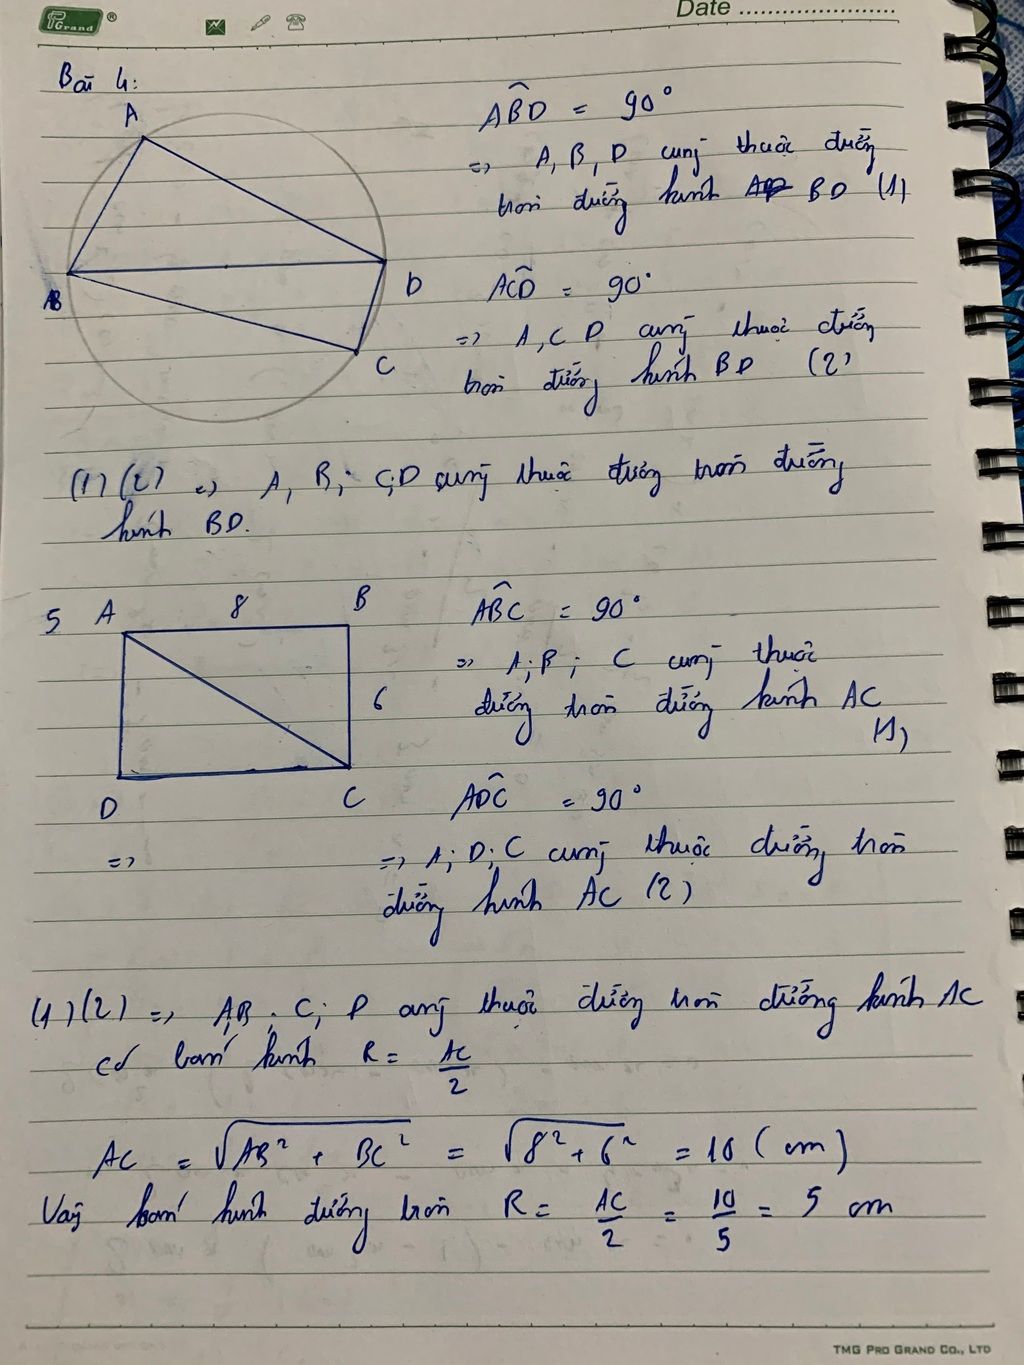 PGrand ®
Date
Bài 4:
A
ABD = 90°
=> A, B, D cùng thuộc đường
tròn đường kính BD (1)
B
D
C
ACD = 90°
=> A, C D cùng thuộc đường
tròn đường kính BD (2)
(1) (2) => A, B; C;D cùng thuộc đường tròn đường
kính BD.
5 A 8 B
6
D C
ABC = 90°
=> A; B; C cùng thuộc
đường tròn đường kính AC
(1)
ADC = 90°
=>
=> A; D; C cùng thuộc đường tròn
đường kính AC (2)
(1) (2) => A;B; C; D cùng thuộc đường tròn đường kính AC
có bán kính R = AC/2
AC = √AB² + BC² = √8² + 6² = 10 (cm)
Vậy bán kính đường tròn R = AC/2 = 10/5 = 5 cm
TMG PRO GRAND CO., LTD